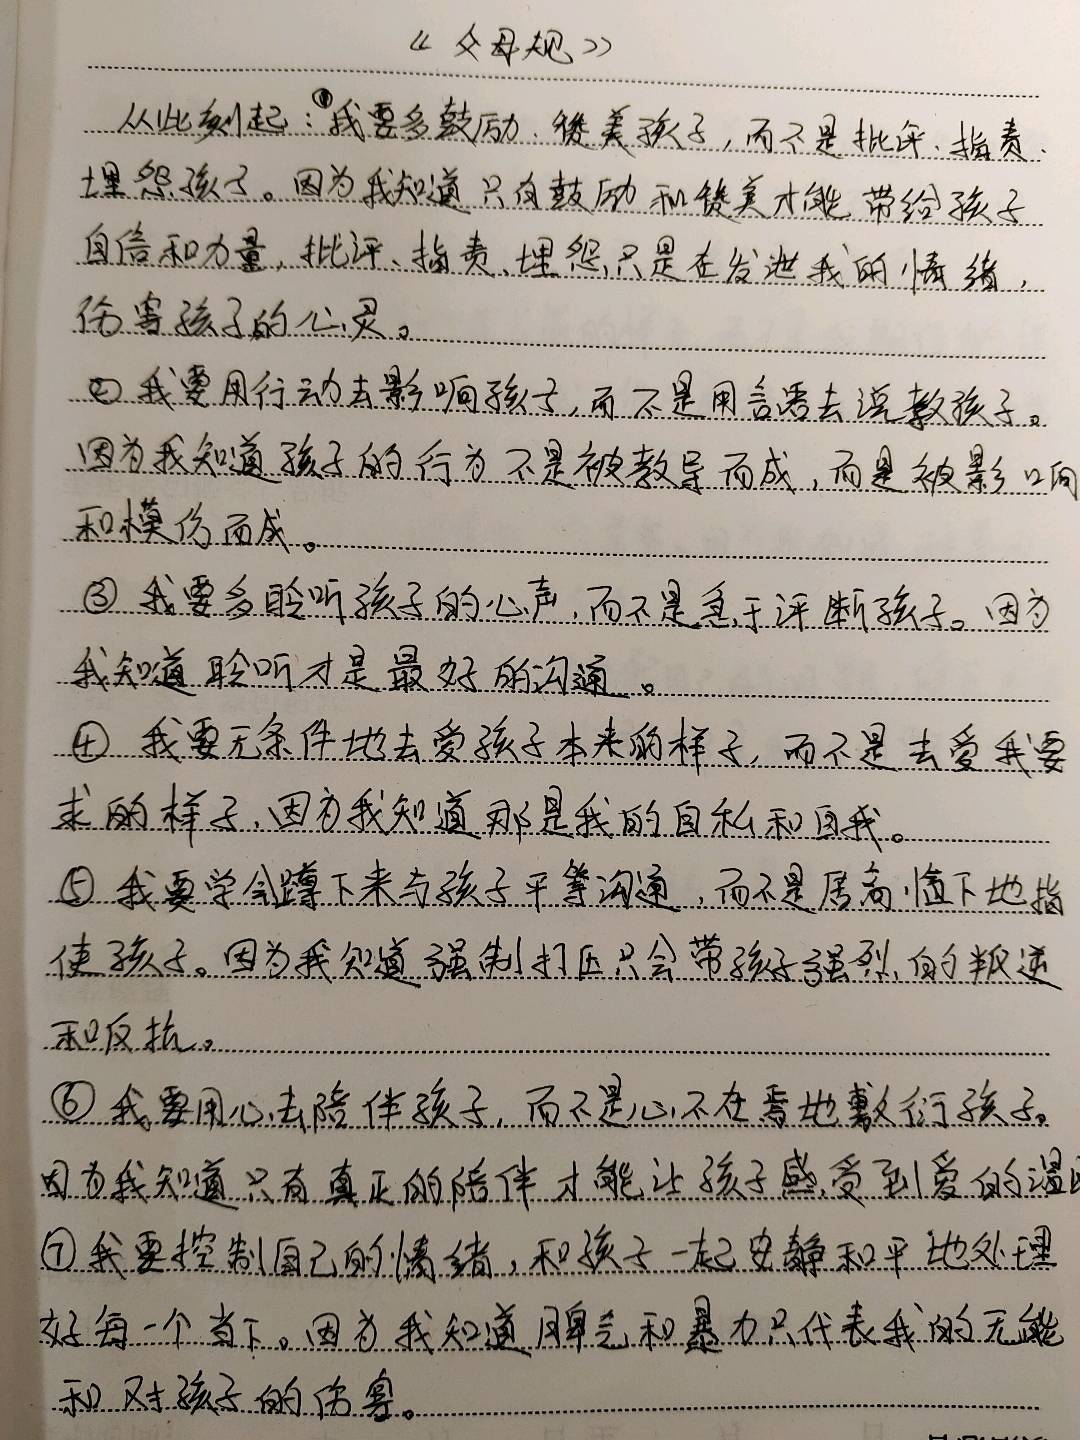 《父母规》
从此刻起：①我要多鼓励、赞美孩子，而不是批评、指责、
埋怨孩子。因为我知道只有鼓励和赞美才能带给孩子
自信和力量，批评、指责、埋怨只是在发泄我的情绪，
伤害孩子的心灵。
②我要用行动去影响孩子，而不是用言语去说教孩子。
因为我知道孩子的行为不是被教导而成，而是被影响
和模仿而成。
③我要多聆听孩子的心声，而不是急于评断孩子。因为
我知道聆听才是最好的沟通。
④我要无条件地去爱孩子本来的样子，而不是去爱我要
求的样子，因为我知道那是我的自私和自我。
⑤我要学会蹲下来与孩子平等沟通，而不是居高临下地指
使孩子。因为我知道强制打压只会带孩子强烈的叛逆
和反抗。
⑥我要用心去陪伴孩子，而不是心不在焉地敷衍孩子。
因为我知道只有真正的陪伴才能让孩子感受到爱的温暖
⑦我要控制自己的情绪，和孩子一起安静和平地处理
好每一个当下。因为我知道脾气和暴力只代表我的无能
和对孩子的伤害。